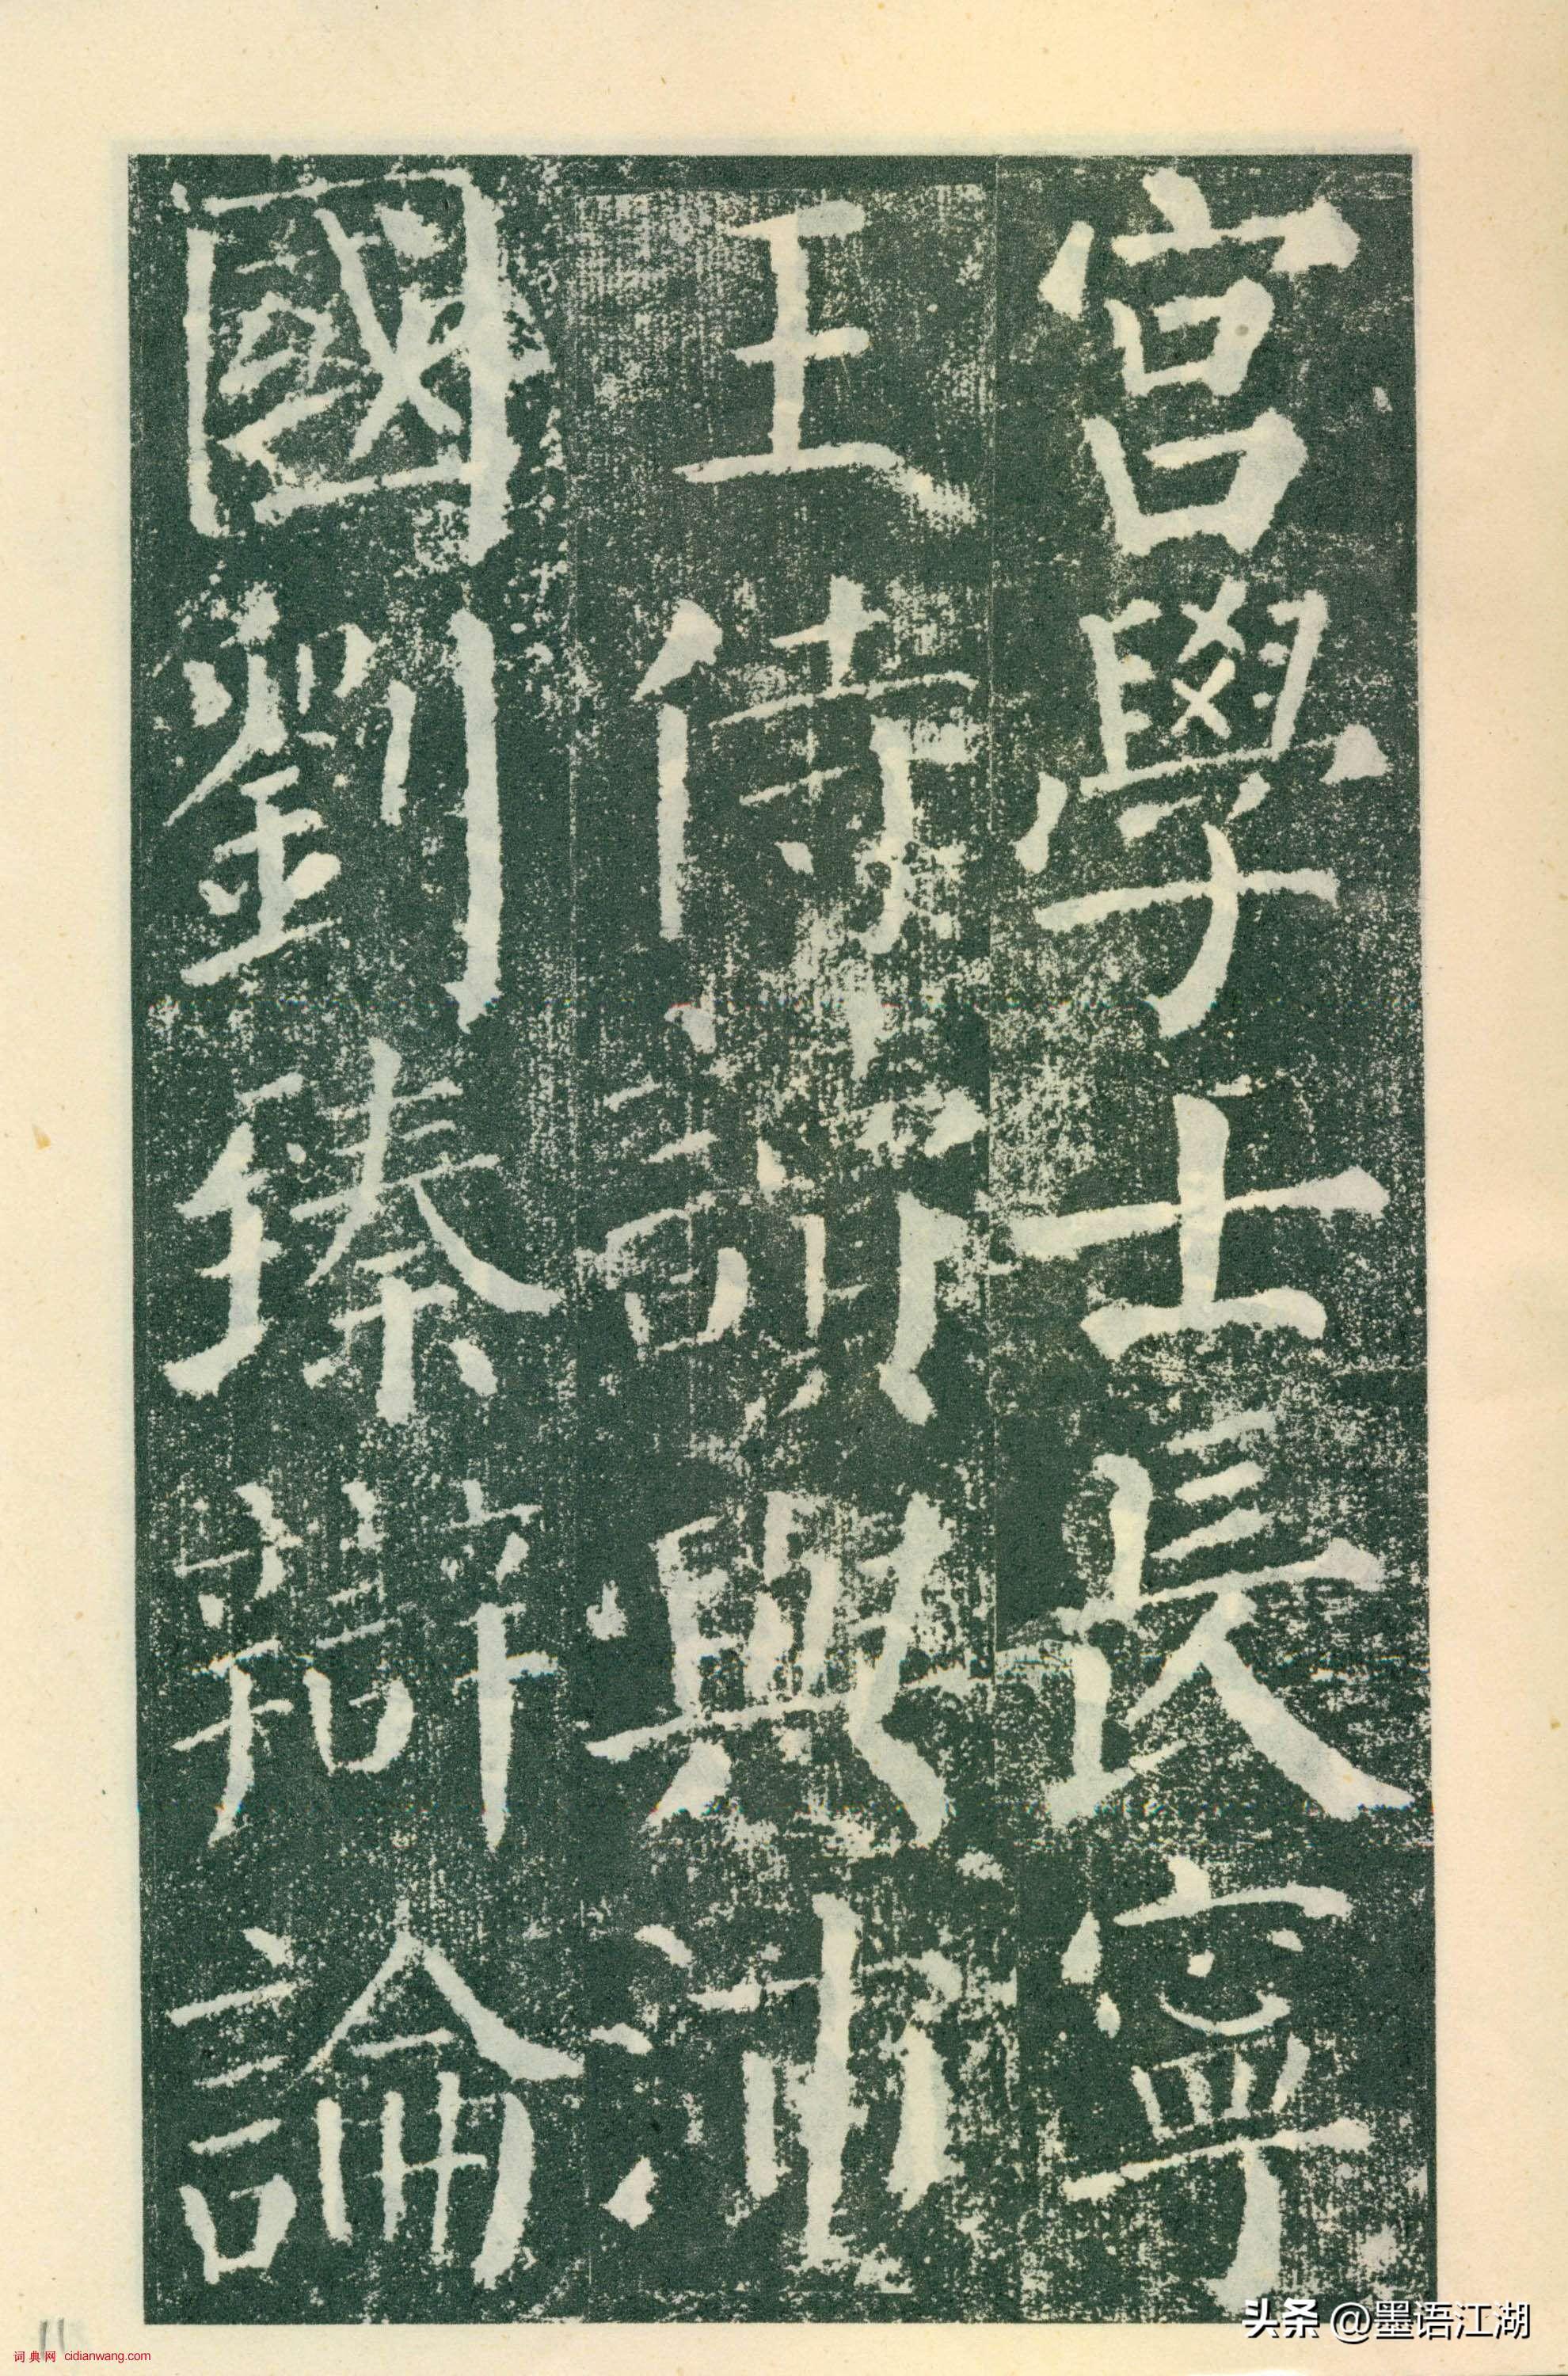 宮學士長寧
王侍詔與沛
國劉臻辯論
11
头条 @墨语江湖
词典网 cidianwang.com